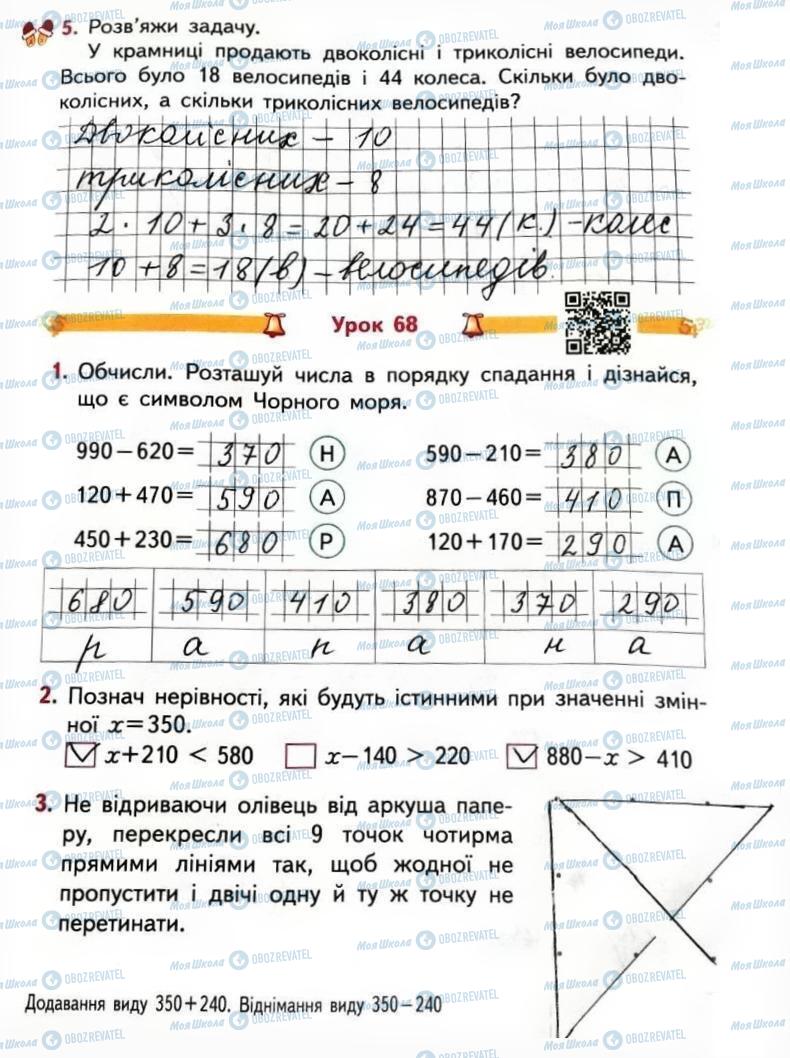 5. Розв'яжи задачу.
У крамниці продають двоколісні і триколісні велосипеди.
Всього було 18 велосипедів і 44 колеса. Скільки було дво-
колісних, а скільки триколісних велосипедів?
Двоколісних – 10
триколісних – 8
2 · 10 + 3 · 8 = 20 + 24 = 44 (к.) – колес
10 + 8 = 18 (в) – велосипедів.
Урок 68
1. Обчисли. Розташуй числа в порядку спадання і дізнайся,
що є символом Чорного моря.
990 – 620 = 370 Н 590 – 210 = 380 А
120 + 470 = 590 А 870 – 460 = 410 П
450 + 230 = 680 Р 120 + 170 = 290 А
680 590 410 380 370 290
р а п а н а
2. Познач нерівності, які будуть істинними при значенні змін-
ної x = 350.
x + 210 < 580 x – 140 > 220 880 – x > 410
3. Не відриваючи олівець від аркуша папе-
ру, перекресли всі 9 точок чотирма
прямими лініями так, щоб жодної не
пропустити і двічі одну й ту ж точку не
перетинати.
Додавання виду 350 + 240. Віднімання виду 350 – 240
МояШкола OBOZREVATEL